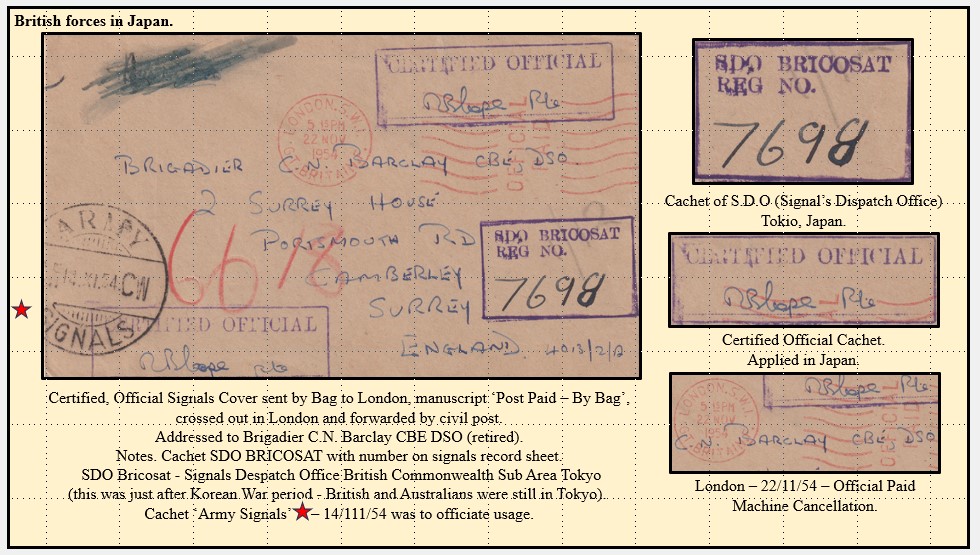 British forces in Japan.
CERTIFIED OFFICIAL
LONDON. S.W.1
5 PM
22 NOV
1954
GT. BRITAIN
OFFICIAL
PAID
BRIGADIER C.N. BARCLAY CBE, DSO.
2 SURREY HOUSE
PORTSMOUTH RD
CAMBERLEY
SURREY
ENGLAND. 4013/2/A
6618
SDO BRICOSAT
REG NO.
7698
ARMY
SIGNALS
TIFIED OFFICIAL
SDO BRICOSAT
REG NO.
7698
Cachet of S.D.O (Signal’s Dispatch Office)
Tokio, Japan.
CERTIFIED OFFICIAL
Certified Official Cachet.
Applied in Japan.
C.N. BARCLAY CBE, DSO
London – 22/11/54 – Official Paid
Machine Cancellation.
Certified, Official Signals Cover sent by Bag to London, manuscript ‘Post Paid – By Bag’,
crossed out in London and forwarded by civil post.
Addressed to Brigadier C.N. Barclay CBE DSO (retired).
Notes. Cachet SDO BRICOSAT with number on signals record sheet.
SDO Bricosat - Signals Despatch Office British Commonwealth Sub Area Tokyo
(this was just after Korean War period - British and Australians were still in Tokyo).
Cachet `Army Signals’ – 14/111/54 was to officiate usage.